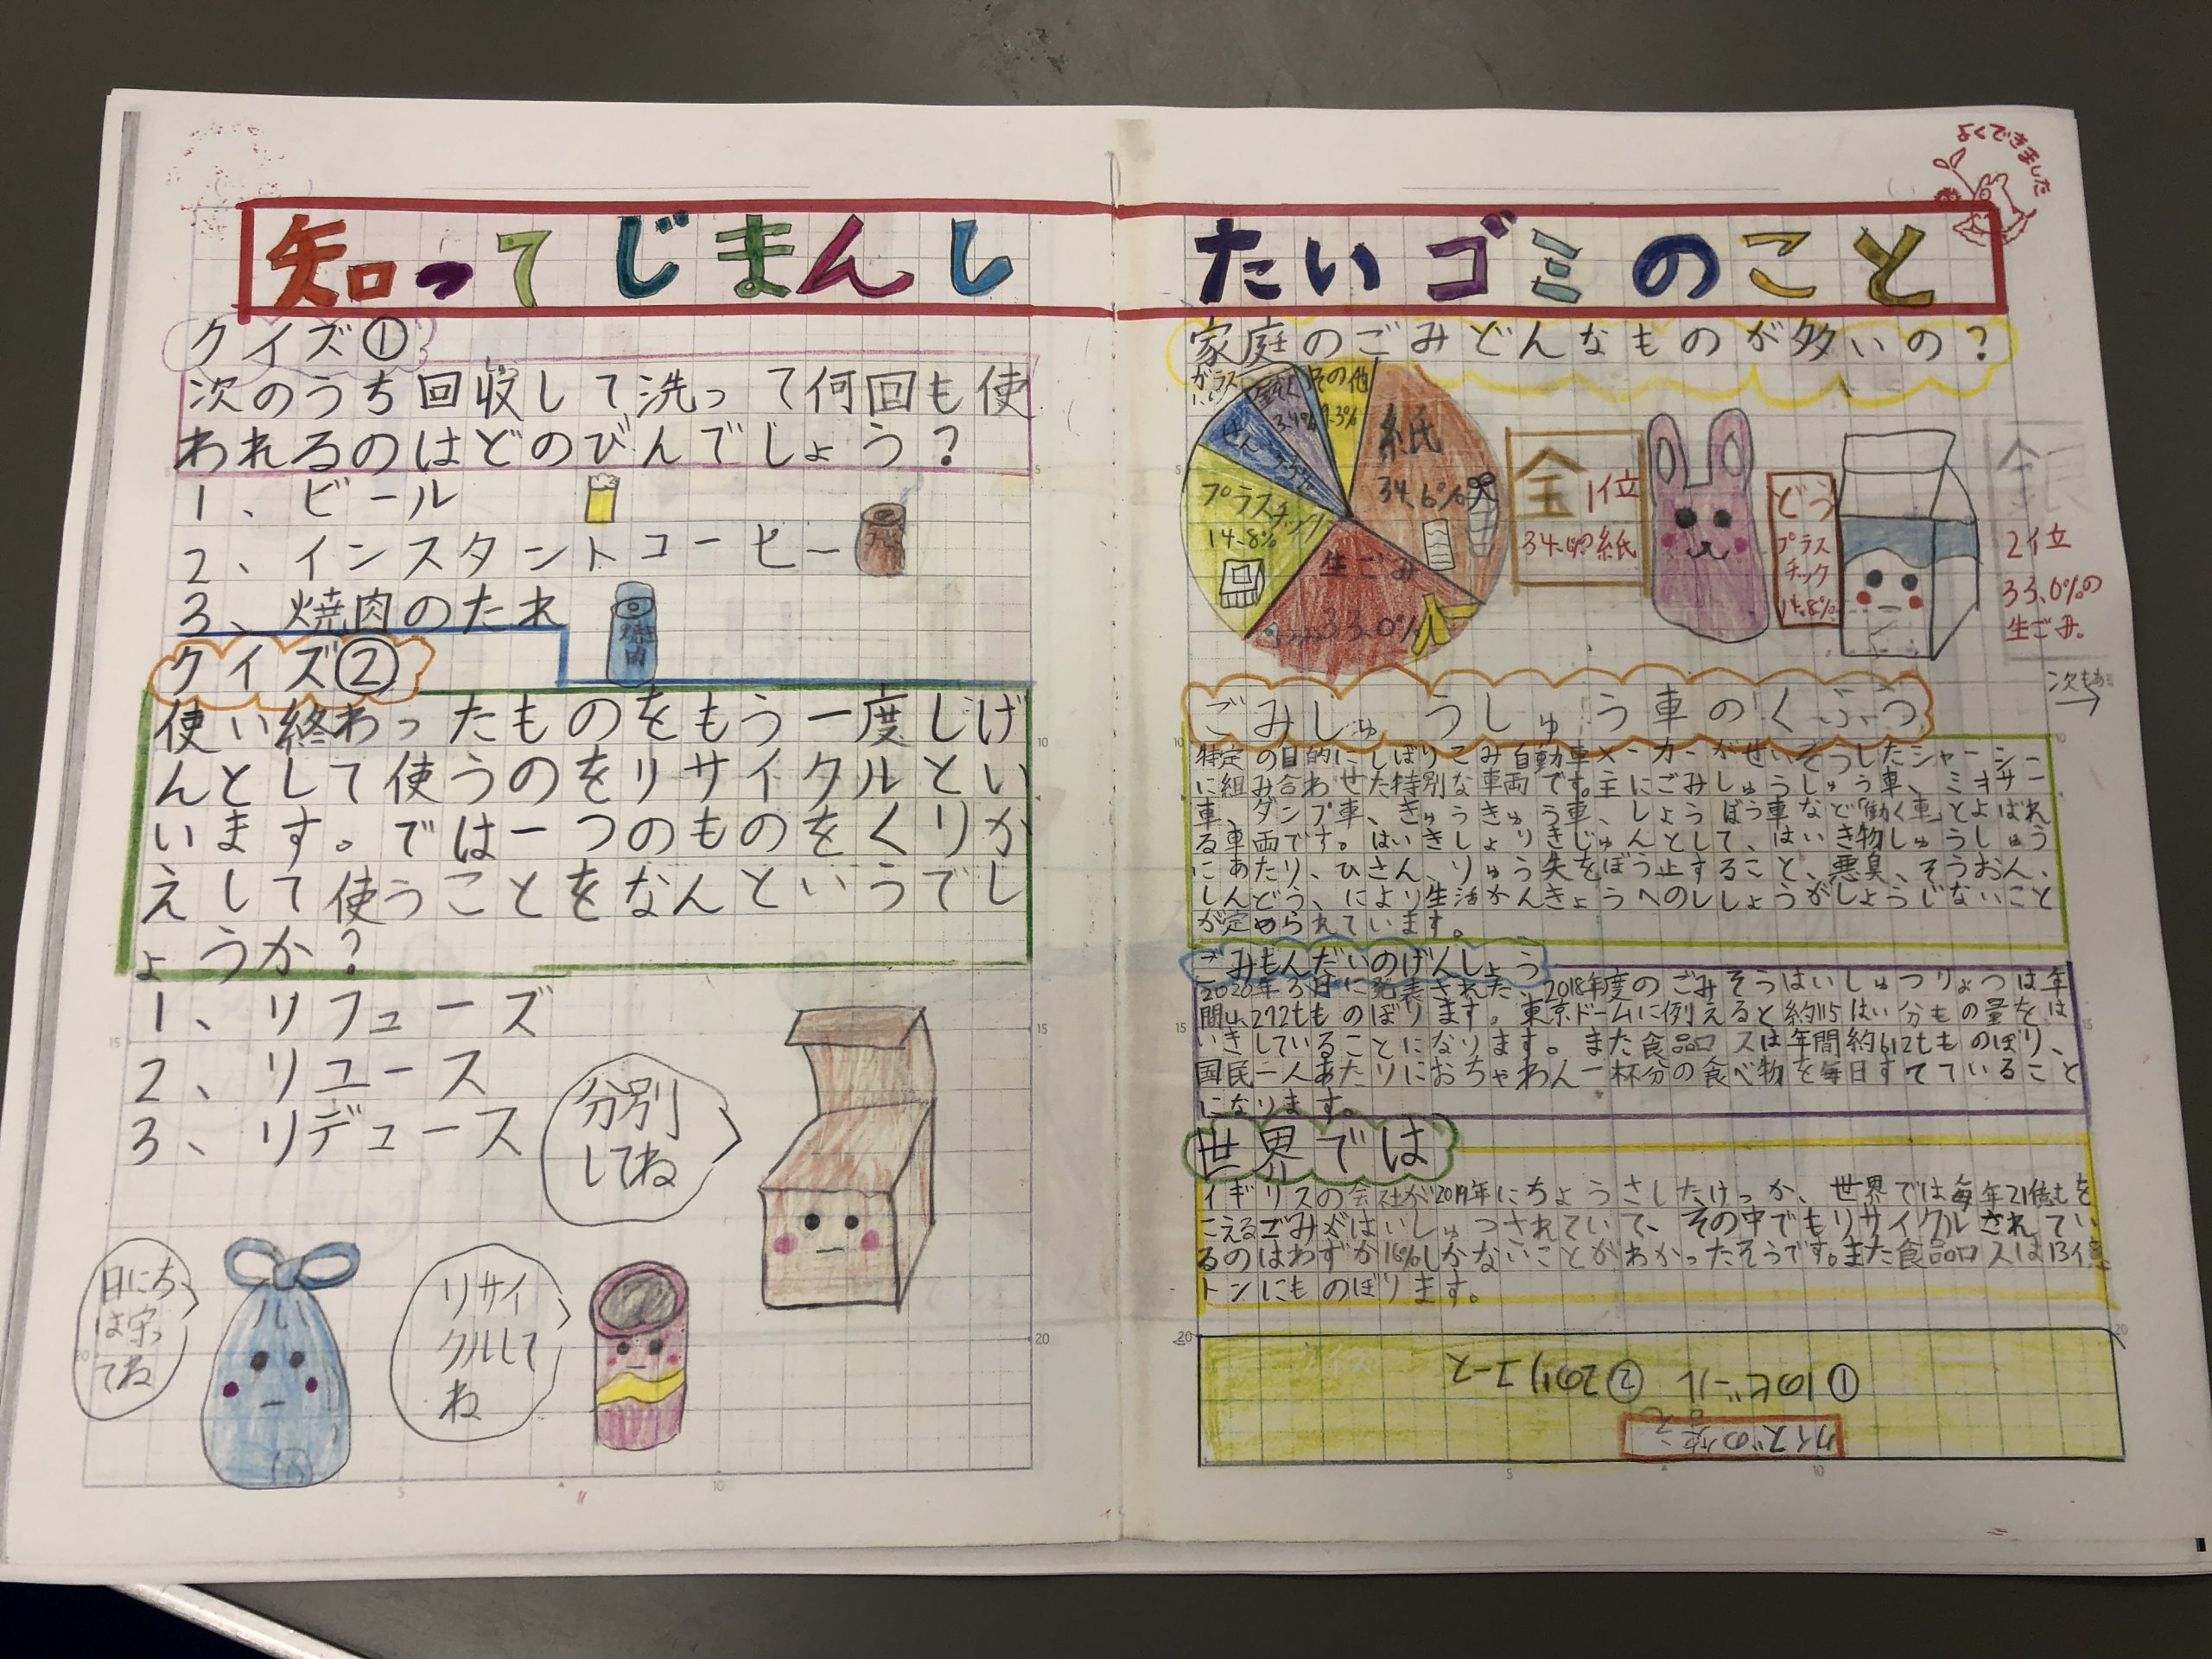 よくできました
知ってじまんしたいゴミのこと
クイズ①
次のうち回収して洗って何回も使
われるのはどのびんでしょう?
1、ビール
2、インスタントコーヒー
3、焼肉のたれ
焼肉
クイズ②
使い終わったものをもう一度しげ
んとして使うのをリサイクルとい
います。では一つのものをくりか
えして使うことをなんというでし
ょうか?
1、リフューズ
2、リユース
3、リデュース
分別
してね
日にち
は守っ
てね
リサイ
クルして
ね
家庭のごみどんなものが多いの?
ガラス
その他
紙
34.6%
プラスチック
14.8%
生ごみ
33.0%
金1位
34.6%紙
どう
プラス
チック
14.8%
銀
2位
33.0%の
生ごみ。
ごみしゅうしゅう車のくふう
特定の目的にしぼりこみ自動車メーカーがせいぞうしたシャーシー
に組み合わせた特別な車両です。主にごみしゅうしゅう車、ミキサー
車、ダンプ車、きゅうきゅう車、しょうぼう車など「働く車」とよばれ
る車両です。はいきしょりきじゅんとして、はいき物しゅうしゅう
にあたり、ひさん、りゅう失をぼう止すること、悪臭、そうおん、
しんどう、により生活かんきょうへのししょうがしょうじないこと
が定められています。
ごみもんだいのげんしょう
2020年3月に発表された、2018年度のごみそうはいしゅつりょうは年
間4,272tものぼります。東京ドームに例えると約115はい分もの量をは
いきしていることになります。また食品ロスは年間約612tものぼり、
国民一人あたりにおちゃわん一杯分の食べ物を毎日すてていること
になります。
世界では
イギリスの会社が2019年にちょうさしたけっか、世界では毎年21億tを
こえるごみがはいしゅつされていて、その中でもリサイクルされてい
るのはわずか16%しかないことがわかったそうです。また食品ロスは13億
トンにものぼります。
クイズの答え
①1のビール ②2のリユース